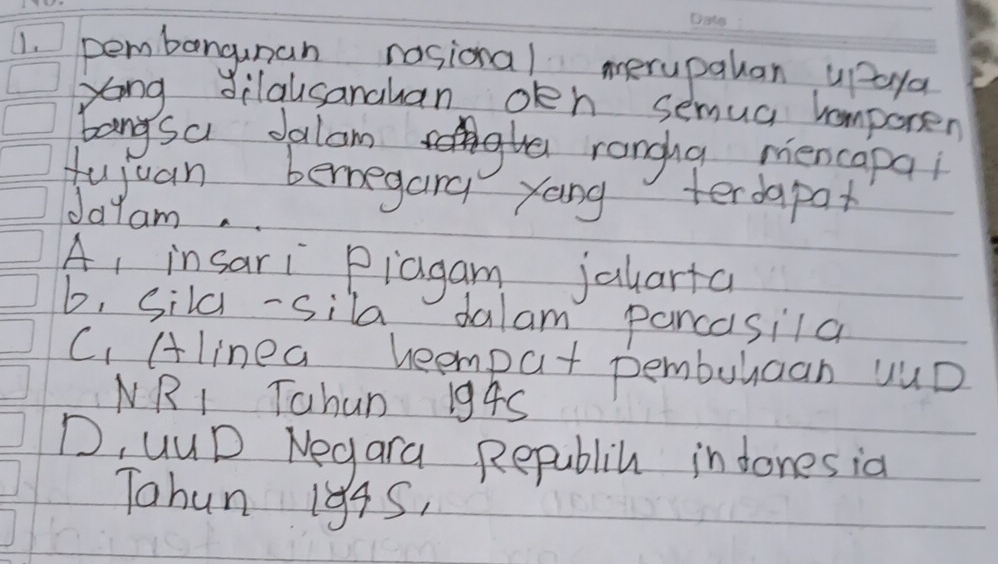 Date
1. pembangunan nasional merupakan upaya
yang dilaksanakan oleh semua komponen
bangsa dalam rangka mencapai
tujuan bernegara yang terdapat
dalam ..
A, insari piagam jakarta
b, sila-sila dalam pancasila
C, Alinea keempat pembukaan UUD
NRI Tahun 1945
D, UUD Negara Republik indonesia
Tahun 1945,